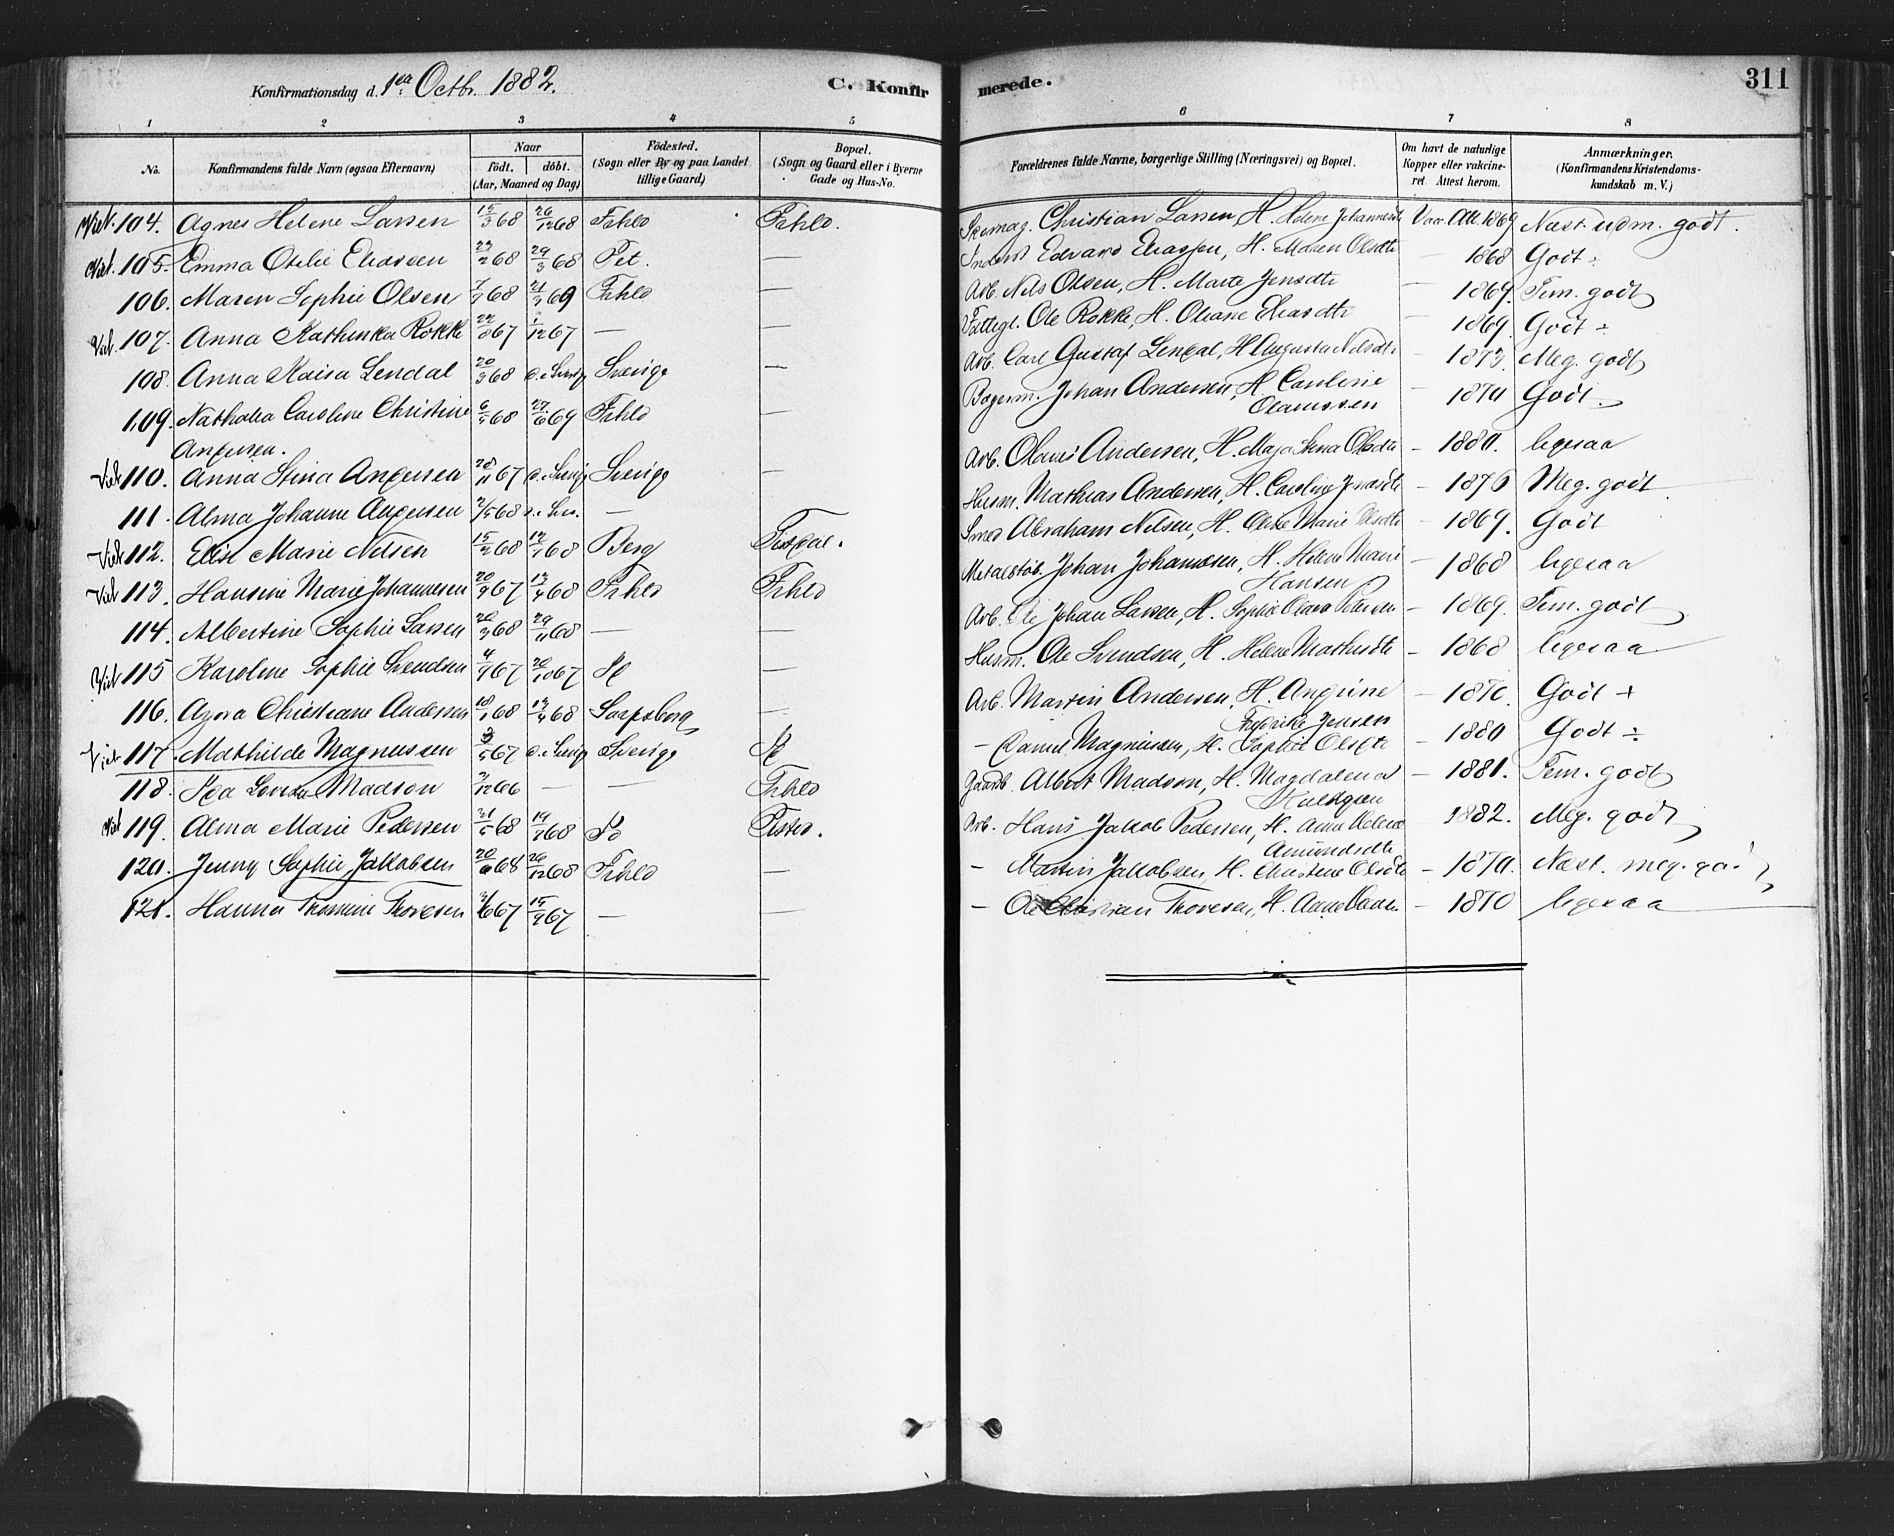 Konfirmationsdag d. 1ste Octbr. 1882.
C. Konfirmerede.
311
1 2 3 4 5 6 7 8
No.
Konfirmandens fulde Navn (ogsaa Efternavn)
Naar
födt. döbt.
(Aar, Maaned og Dag)
Födested.
(Sogn eller By og paa Landet tillige Gaard)
Bopæl.
(Sogn og Gaard eller i Byerne Gade og Hus-No.
Forældrenes fulde Navne, borgerlige Stilling (Næringsvei) og Bopæl.
Om havt de naturlige Kopper eller vakcineret. Attest herom.
Anmærkninger.
(Konfirmandens Kristendomskundskab m. V.)
104. Agnes Helene Larsen 15/3 68 26/12 68 Frhld Frhld. Skomag. Christian Larsen, H. Helene Johannesdt Vacc. Att. 1869 Næst udm. godt.
105. Emma Otilie Eliassen 23/2 68 29/3 68 Fet. — Edvard Eliassen, H. Maren Olsdt — 1868 Godt ÷
106. Maren Sophie Olsen 7/7 68 21/3 69 Frhld — Arb. Nils Olsen, H. Marte Jensdt — 1869. Tem. godt
107. Anna Kathinka Rokke 22/8 67 1/12 67 — — Fattigl. Ole Rokke, H. Oliane Eliasdt — 1869 Godt ÷
108. Anna Kaisa Lendal 20/3 68 d. i Sverig Sverige — Arb. Carl Gustaf Lendal, H. Augusta Nilsdt — 1873. Meg. godt
109. Nathalia Caroline Christine 6/5 68 27/6 69 Frhld — Bogerm. Johan Andersen, H. Caroline — 1870 Godt.
Andersen. Olaussen
110. Anna Stina Andersen 28/11 67 d. i Sverig Sverige — Arb. Olaus Andersen, H. Maja Stina Olsdt — 1880. ligesaa
111. Alma Johanne Andersen 2/5 68 d. i Sv. — — Husm. Mathias Andersen, H. Caroline Jonasdt — 1876 Meg. godt
112. Elise Marie Nilsen 15/2 68 12/7 68 Berg Tistedal. Smed Abraham Nilsen, H. Olise Marie Olsdt — 1869. Godt
113. Hansine Marie Johannesen 20/9 67 13/4 68 Frhld Frhld Metalstøb. Johan Johannesen, H. Helene Marie — 1868 ligesaa
Hansen
114. Albertine Sophie Larsen 20/3 68 29/11 68 — — Arb. Ole Johan Larsen, H. Sophie Olava — 1869. Tem. godt
115 Karoline Sophie Svendsen 4/9 67 20/10 67 Id — Husm. Ole Svendsen, H. Helene Mathisdt — 1868 ligesaa
116. Azora Christiane Andersen 18/1 68 13/4 68 Sarpsborg — Arb. Martin Andersen, H. Andrine — 1870. Godt +
Fredrike Jensen
117 Mathilde Magnussen 3/5 67 d. i Sverig Sverige Id — Daniel Magnussen, H. Sophie Olsdt — 1880 Godt ÷
118. Lovisa Madson /12 66 — — Frhld Gaardb. Albert Madson, H. Magdalena — 1881. Tem. godt
119. Alma Marie Pedersen 21/5 68 19/7 68 Id Tisted. Arb. Hans Jakob Pedersen, H. Anne Helene 1882. Meg. godt
Amundsdt.
120. Jenny Sophie Jakobsen 20/6 68 26/12 68 Frhld — — Martin Jakobsen, H. Christine Olsdt — 1870. Næst. meg. godt
121. Hanna Thomine Thoresen 67 15/9 67 — — — Ole Christian Thoresen, H. Anne — 1870 ligesaa